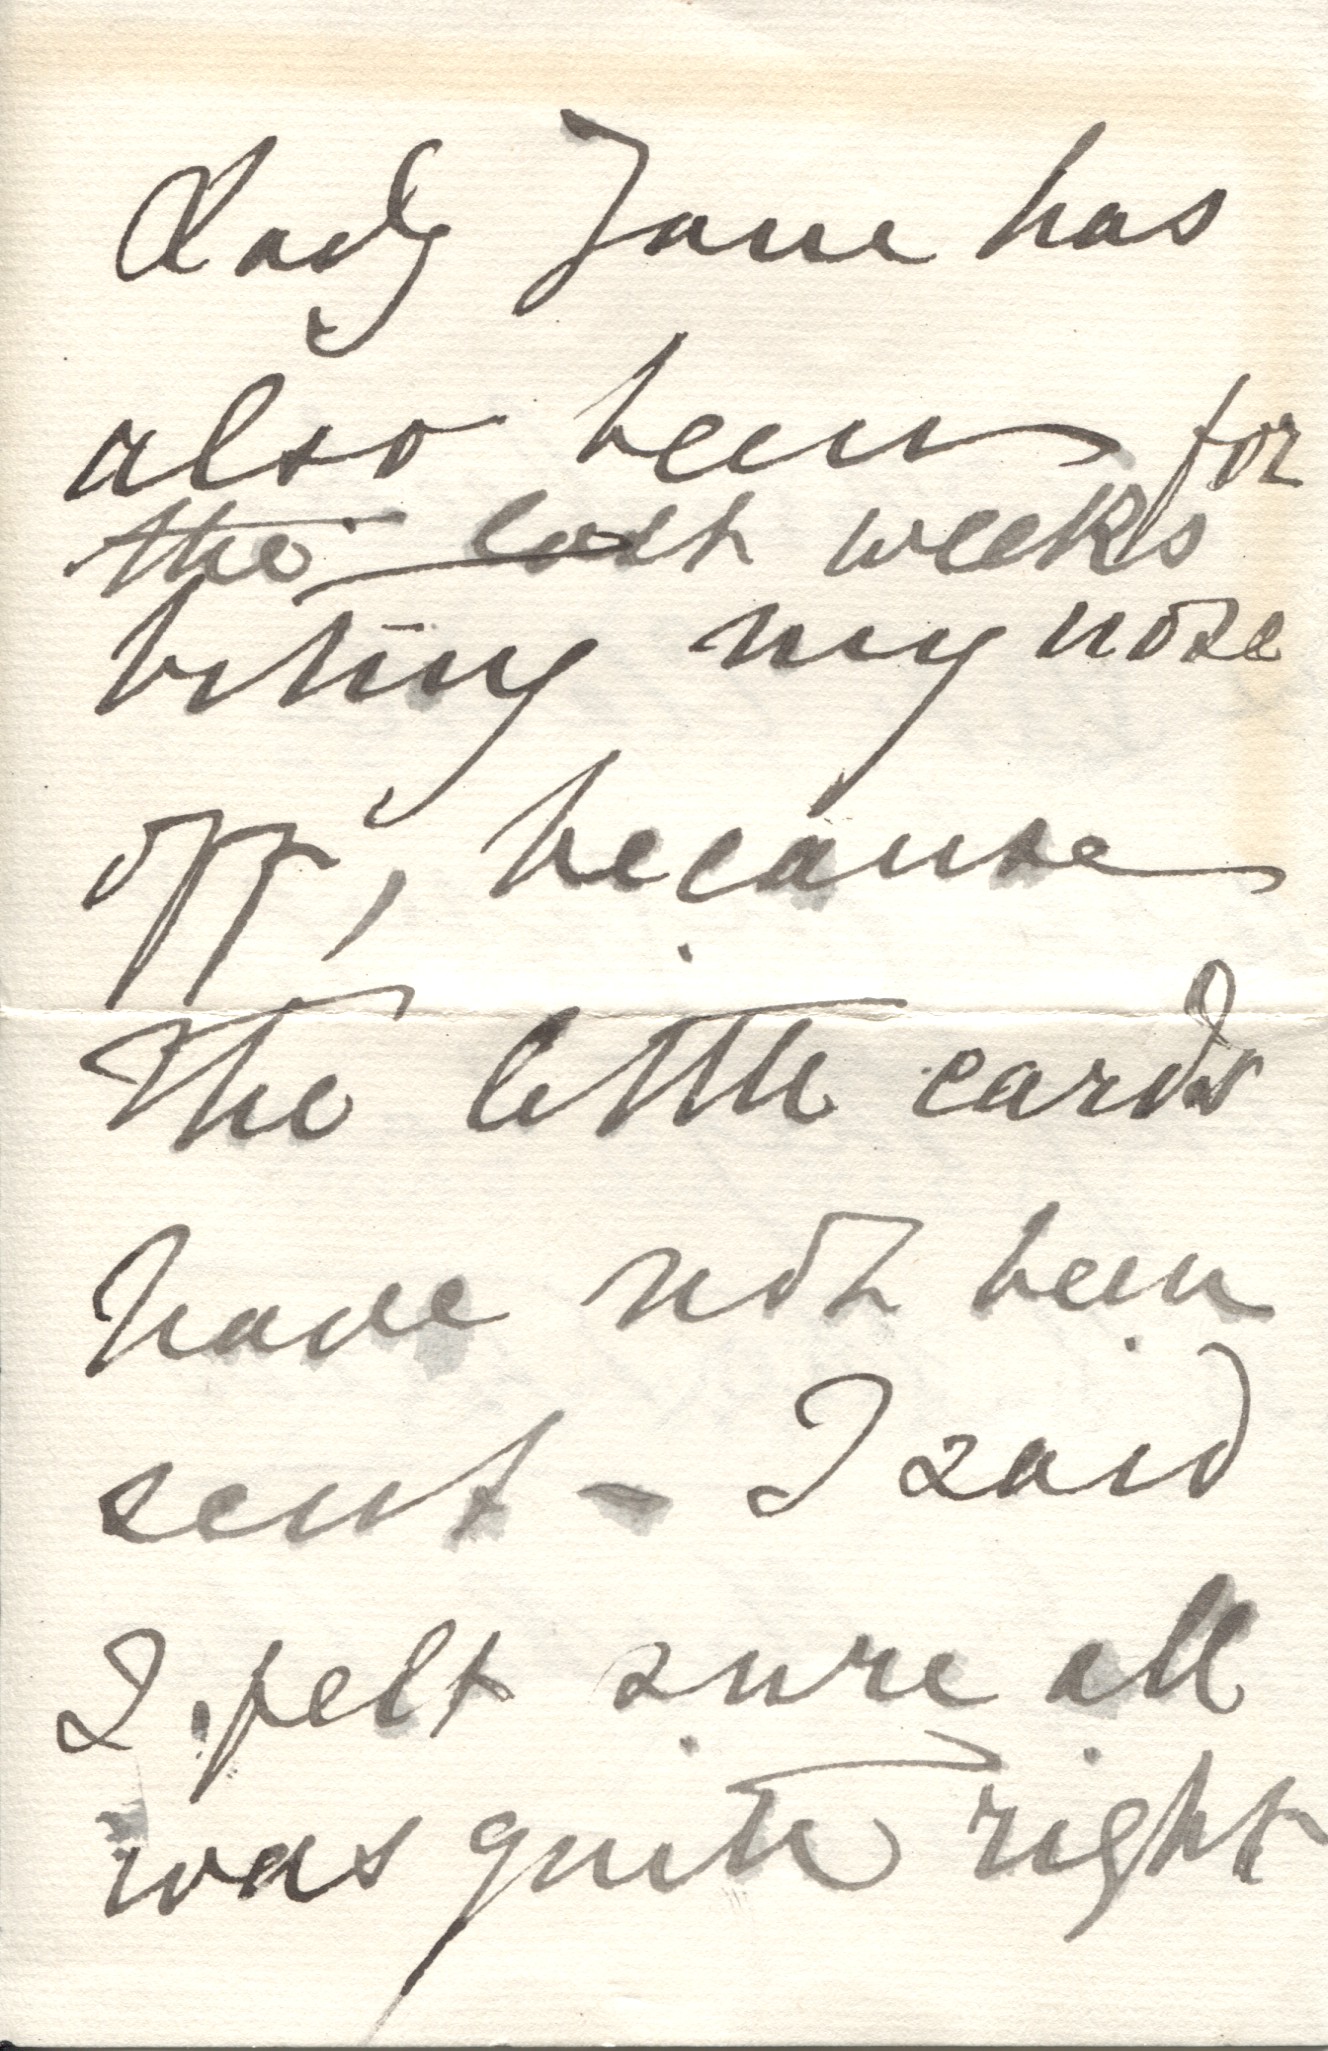 Lady Jane has
also been for
the last weeks
biting my nose
off, because
the little cards
have not been
sent – I said
I felt sure all
was quite right